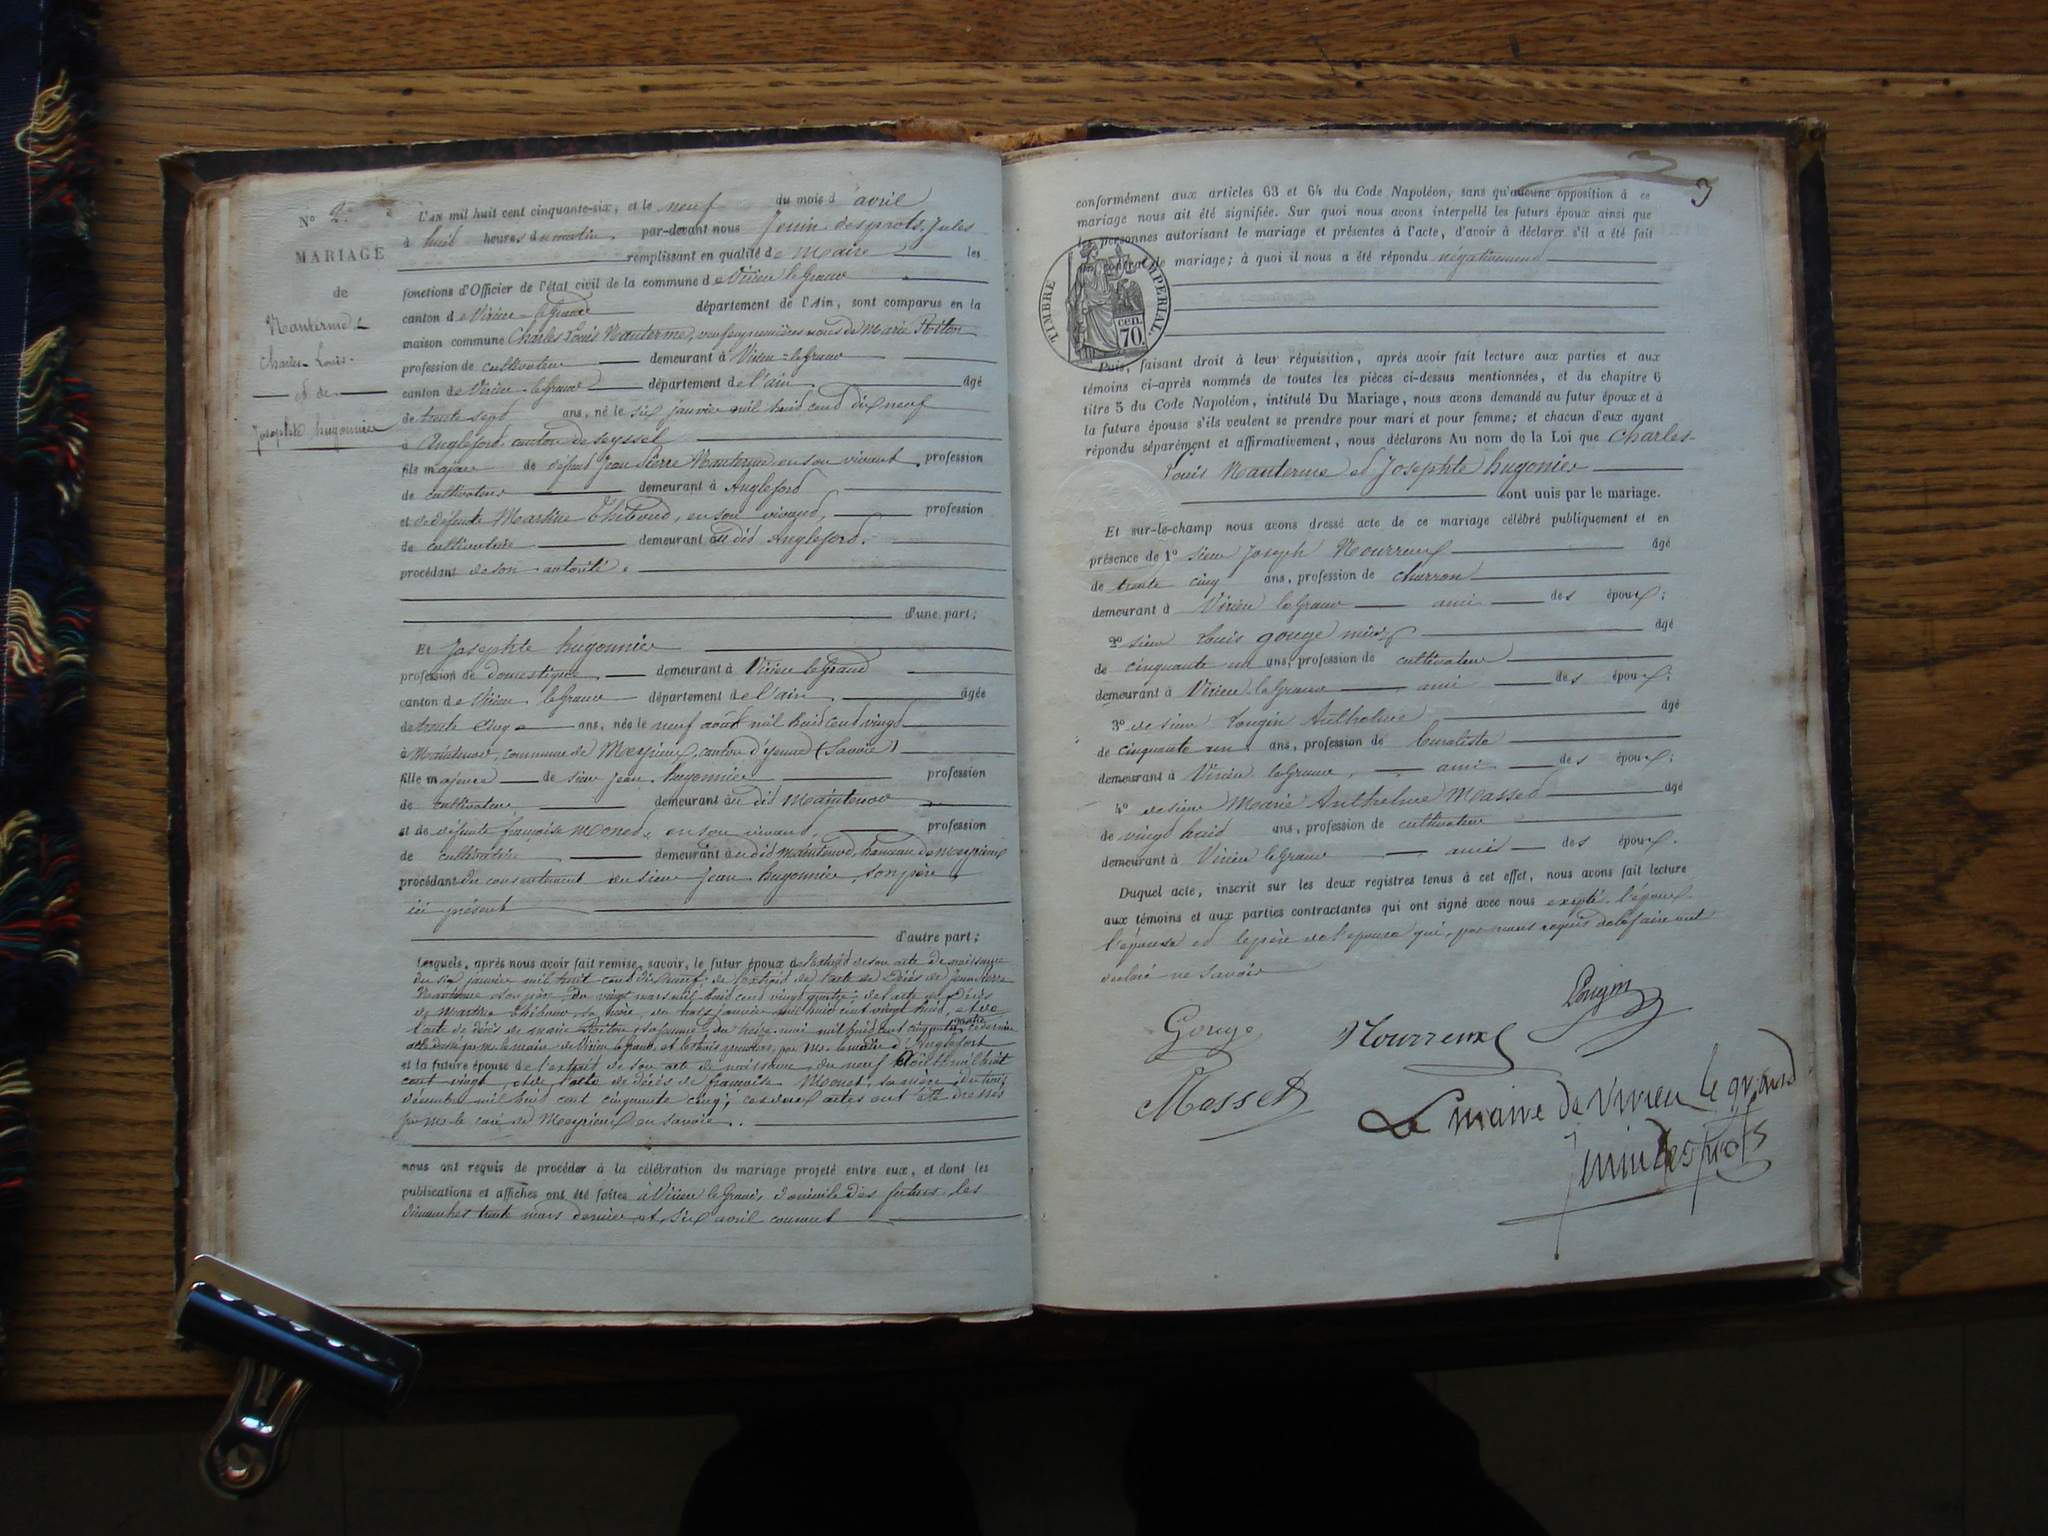 N° 2.
MARIAGE
de
Nanterme
Charles-Louis
et de
Josephte hugonnier
L'AN mil huit cent cinquante-six, et le neuf du mois d'avril
à huit heures du matin, par-devant nous Jenin desprots, Jules
remplissant en qualité de Maire les
fonctions d'Officier de l'état civil de la commune de Virieu le Grand
canton de Virieu-le Grand département de l'Ain, sont comparus en la
maison commune Charles Louis Nanterme, veuf en premières noces de Marie Riton
profession de cultivateur demeurant à Virieu-le grand
canton de Virieu-le Grand département de l'ain âgé
de trente sept ans, né le six janvier mil huit cent dix neuf
à Angleford, canton de seyssel
fils majeur de défunt Jean Pierre Nanterme en son vivant profession
de cultivateur demeurant à Angleford
et de défunte Martine Thiboud, en son vivant, profession
de cultivatrice demeurant au dit Angleford.
procédant de son autorité.
d'une part;
Et Josephte hugonnier
profession de domestique demeurant à Virieu le Grand
canton de Virieu le Grand département de l'ain âgée
de trente cinq ans, née le neuf août mil huit cent vingt
à Maintenod, commune de Meyrieux, canton d'yenne (Savoie)
fille majeure de sieur Jean hugonnier profession
de cultivateur demeurant au dit Maintenod
et de défunte françoise Monet, en son vivant, profession
de cultivatrice demeurant au dit Maintenod, hameau de Meyrieux
procédant du consentement du sieur Jean hugonnier, son père,
ici présent
d'autre part;
Lesquels, après nous avoir fait remise, savoir, le futur époux de l'extrait de son acte de naissance
du six janvier mil huit cent dix neuf; de l'extrait de l'acte de décès de Jean Pierre
Nanterme son père du vingt mars mil huit cent vingt quatre; de l'acte de décès
de Martine Thiboud, sa mère, du trois janvier mil huit cent vingt huit, et de
l'acte de décès de marie Riton, sa femme, du treize mai mil huit cent cinquante quatre, ce dernier
acte dressé par mr le maire de Virieu le grand, et les trois premiers, par Mr le maire d'Anglefort
et la future épouse de l'extrait de son acte de naissance du neuf Août mil huit
cent vingt, et de l'acte de décès de françoise Monet, sa mère, du trois
décembre mil huit cent cinquante cinq; ces deux actes ont été dressés
par Mr le curé de Meyrieux en savoie.
nous ont requis de procéder à la célébration du mariage projeté entre eux, et dont les
publications et affiches ont été faites à Virieu le Grand, domicile des futurs les
dimanches trente mars dernier et six avril courant
3
conformément aux articles 63 et 64 du Code Napoléon, sans qu'aucune opposition à ce
mariage nous ait été signifiée. Sur quoi nous avons interpellé les futurs époux ainsi que
les personnes autorisant le mariage et présentes à l'acte, d'avoir à déclarer s'il a été fait
un contrat de mariage; à quoi il nous a été répondu négativement
TIMBRE IMPÉRIAL.
70 cen.
Puis, faisant droit à leur réquisition, après avoir fait lecture aux parties et aux
témoins ci-après nommés de toutes les pièces ci-dessus mentionnées, et du chapitre 6
titre 5 du Code Napoléon, intitulé Du Mariage, nous avons demandé au futur époux et à
la future épouse s'ils veulent se prendre pour mari et pour femme; et chacun d'eux ayant
répondu séparément et affirmativement, nous déclarons Au nom de la Loi que Charles-
Louis Nanterme et Josephte hugonier
sont unis par le mariage.
Et sur-le-champ nous avons dressé acte de ce mariage célébré publiquement et en
présence de 1° sieur Joseph Nourreux âgé
de trente cinq ans, profession de charron
demeurant à Virieu le Grand ami des époux;
2° sieur Louis gouge âgé
de cinquante un ans, profession de cultivateur
demeurant à Virieu le Grand ami des époux;
3° de sieur Lougin Anthelme âgé
de cinquante un ans, profession de buraliste
demeurant à Virieu le Grand, ami des époux;
4° de sieur Marie Anthelme Masset âgé
de vingt huit ans, profession de cultivateur
demeurant à Virieu le Grand amis des époux.
Duquel acte, inscrit sur les deux registres tenus à cet effet, nous avons fait lecture
aux témoins et aux parties contractantes qui ont signé avec nous excepté l'époux
l'épouse et le père de l'épouse qui, par nous requis de le faire ont
déclaré ne savoir
Gouge
Nourreux
Lougin
Masset
Le maire de Virieu le grand
Jenin desprots